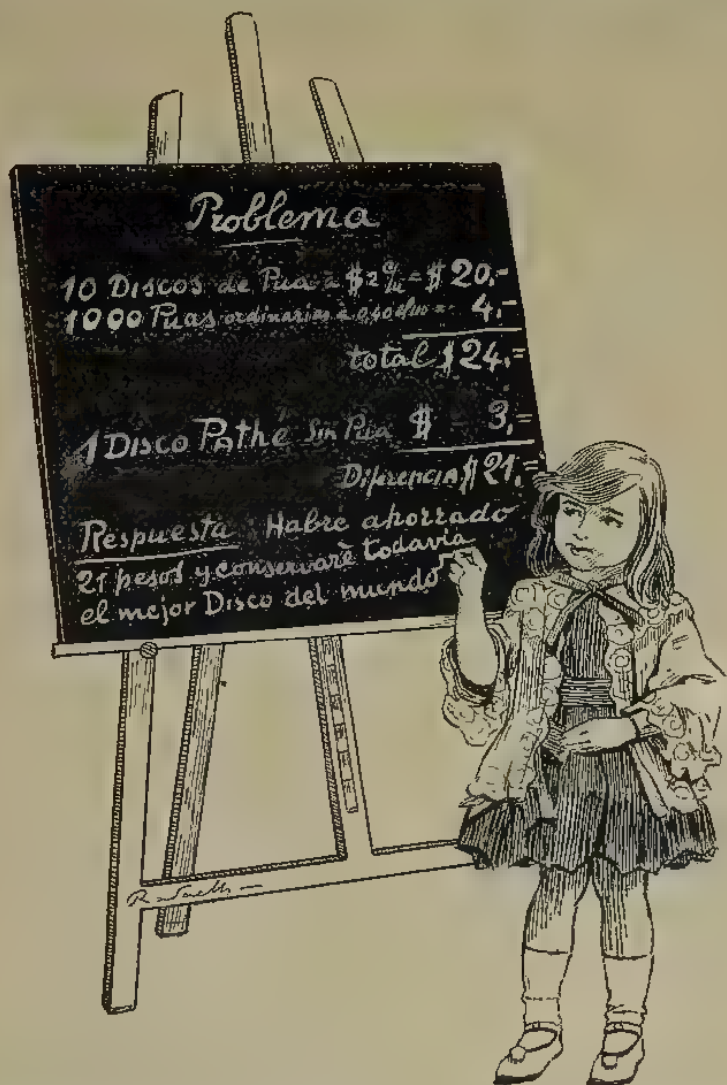 Problema
10 Discos de Pua à $2 c/u = $ 20,-
1000 Puas ordinarias à 0,40 c/100 = 4,-
total $ 24,=
1 Disco Pathe Sin Pua $ - 3,=
Diferencia $ 21,=
Respuesta: Habre ahorrado
21 pesos y conservarè todavia
el mejor Disco del mundo